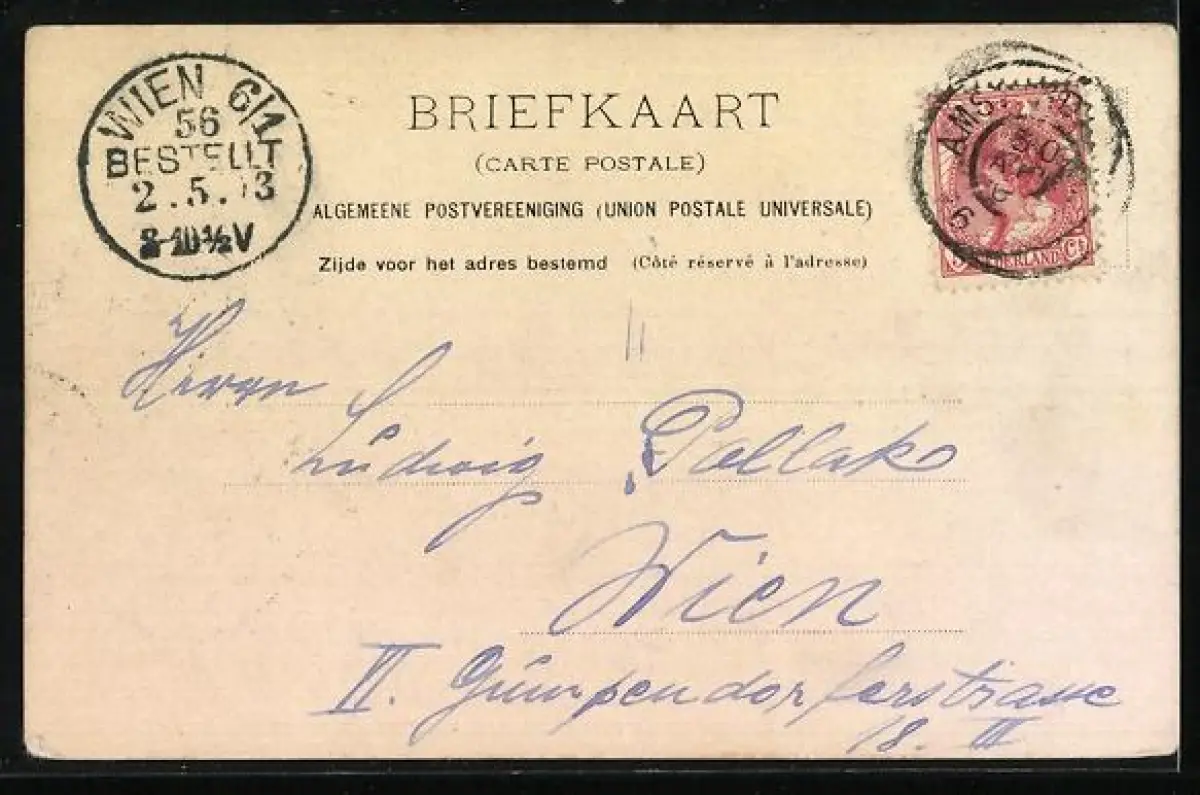 WIEN 6/1
56
BESTELLT
2.5.03
8-10½V
BRIEFKAART
(CARTE POSTALE)
ALGEMEENE POSTVEREENIGING (UNION POSTALE UNIVERSALE)
Zijde voor het adres bestemd (Côté réservé à l'adresse)
5 NEDERLAND Ct
Herrn
Ludwig Pollak
Wien
VI. Gumpendorferstrasse
18. III